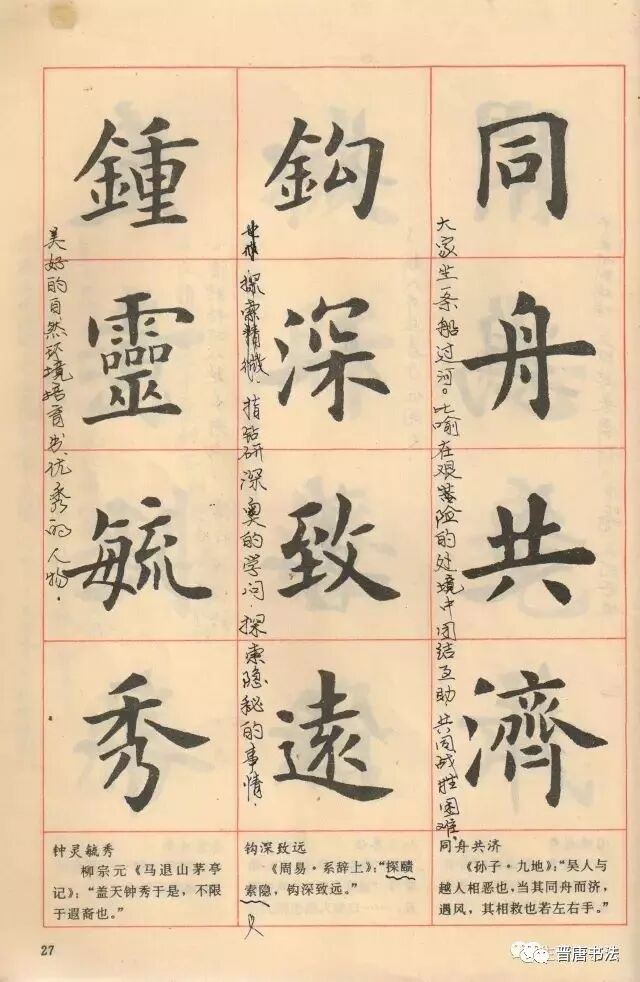 同舟共濟
大家坐一条船过河。比喻在艰险的处境中团结互助，共同战胜困难。
鈎深致遠
探索精微．指钻研深奥的学问．探索隐秘的事情．
鍾靈毓秀
美好的自然环境培育出优秀的人物．
同舟共济
《孙子·九地》：“吴人与
越人相恶也，当其同舟而济，
遇风，其相救也若左右手。”
钩深致远
《周易·系辞上》：“探赜
索隐，钩深致远。”
钟灵毓秀
柳宗元《马退山茅亭
记》：“盖天钟秀于是，不限
于遐裔也。”
27
晋唐书法